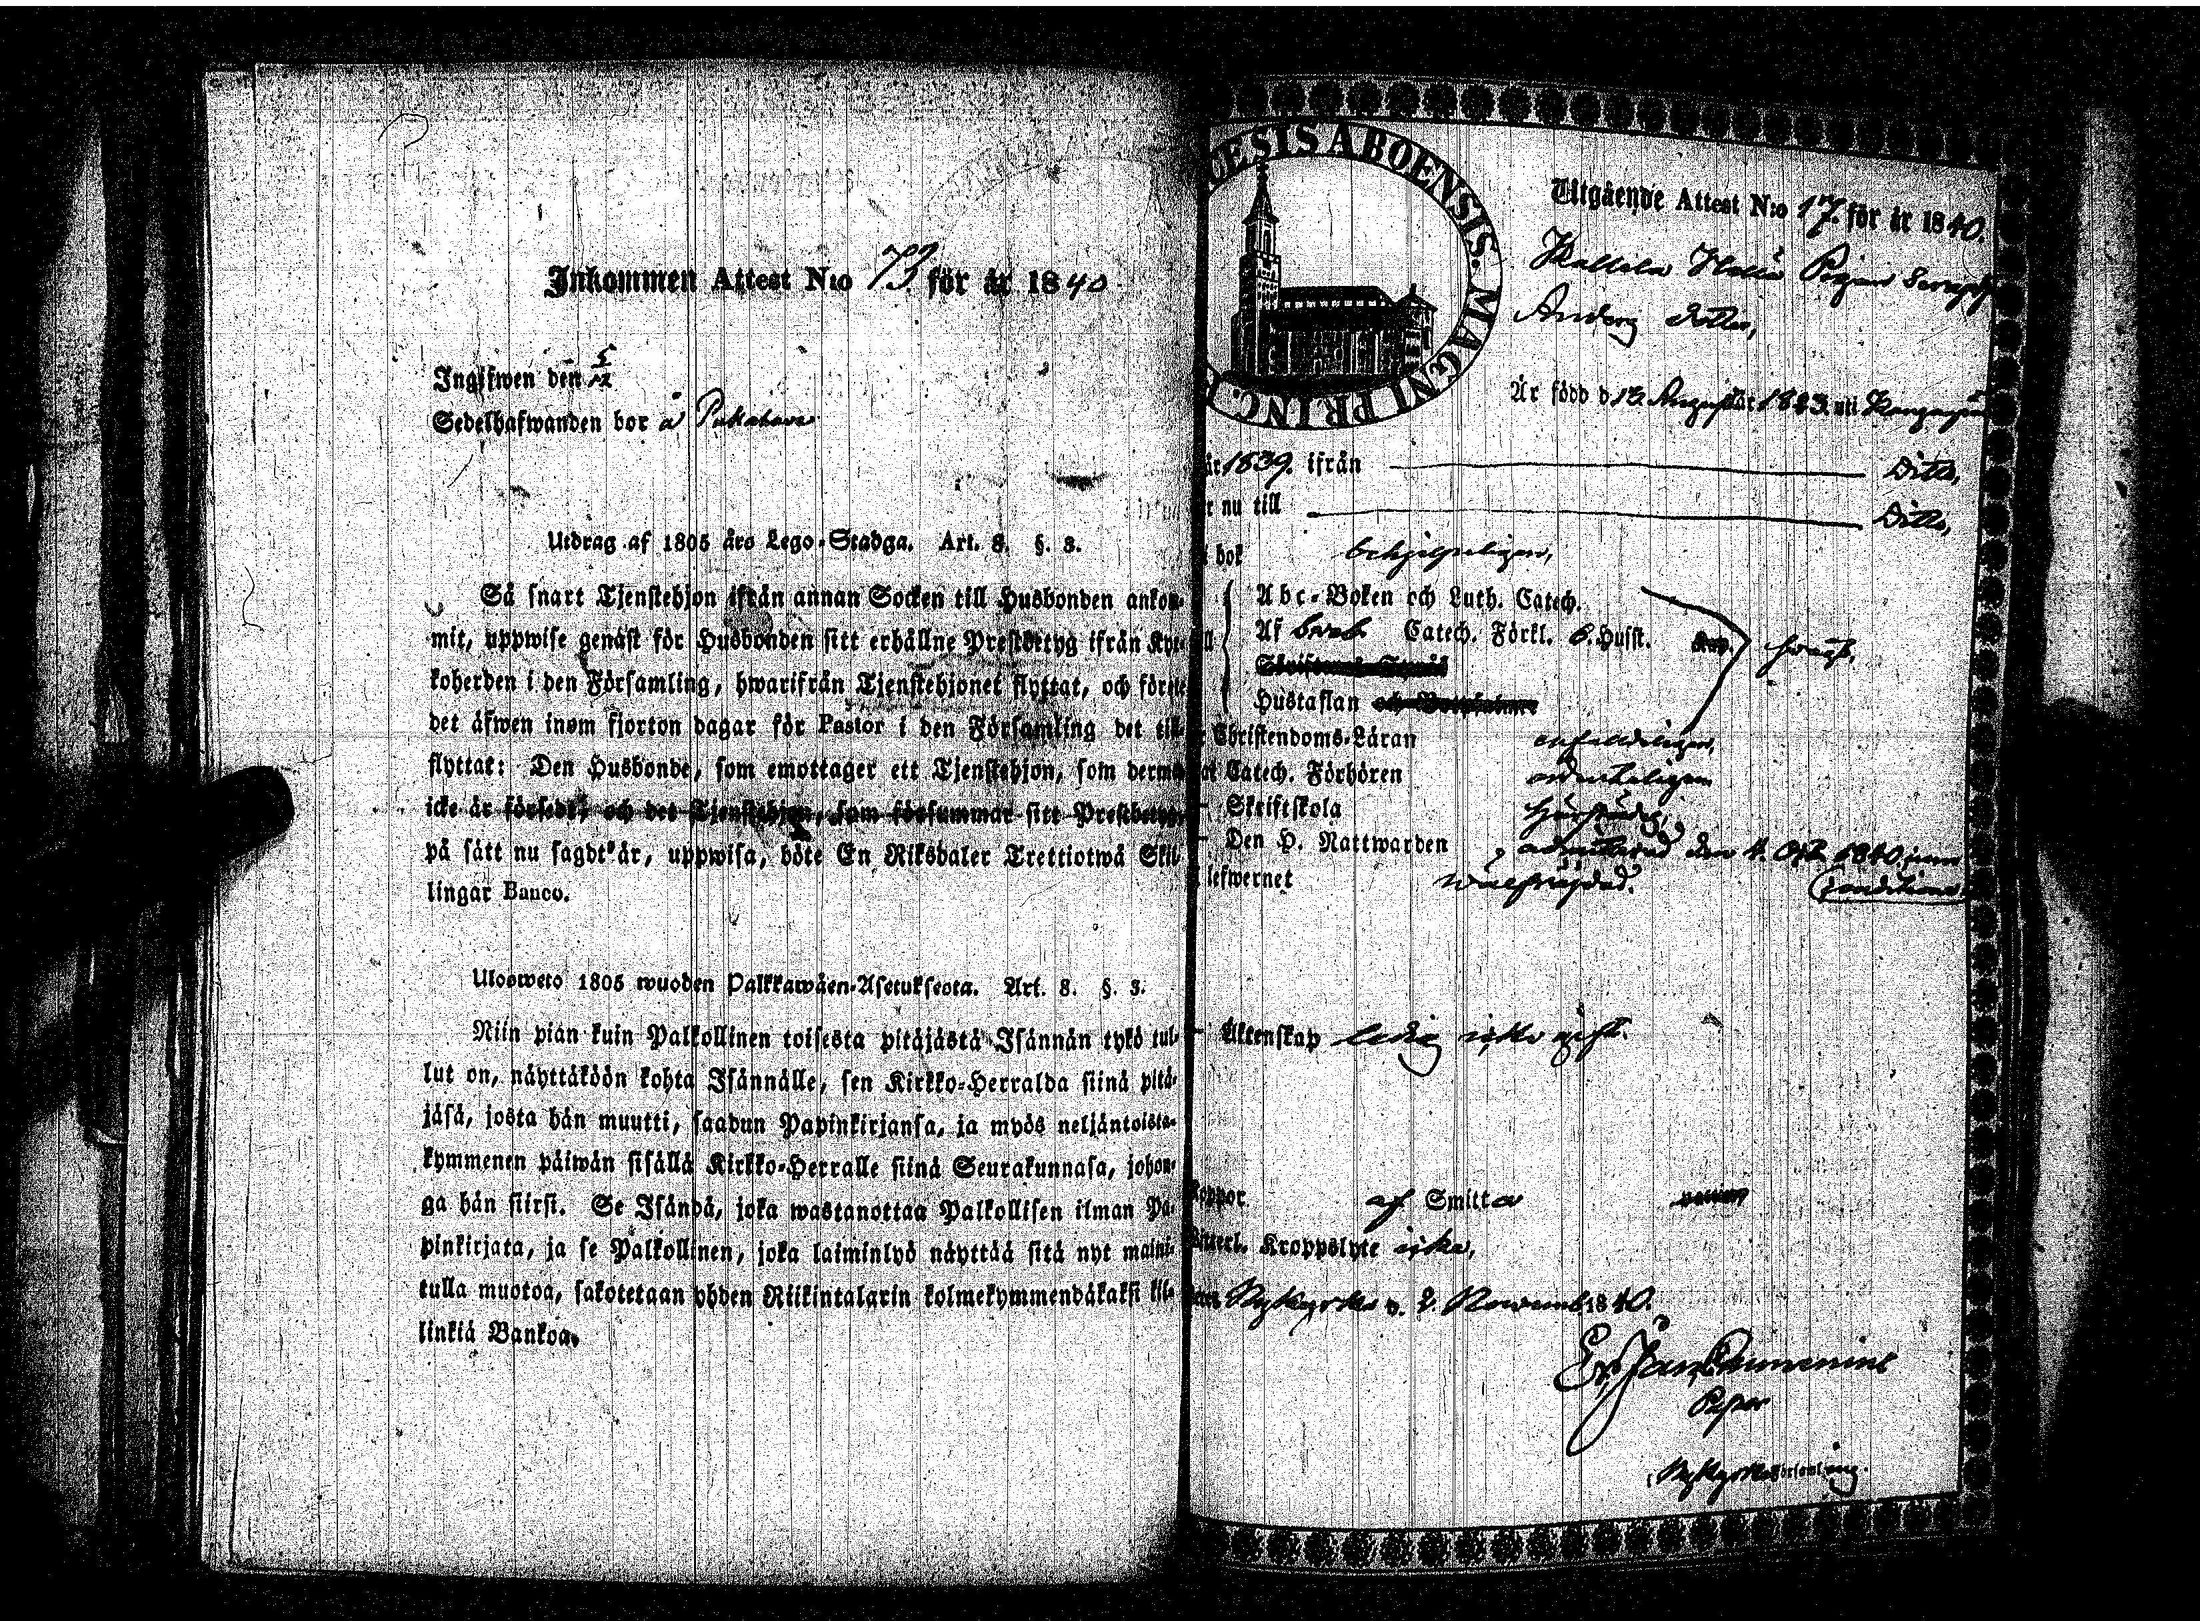 Inkommen Attest N:o 73 för år 1840
Ingifwen den 5/12
Sedelhafwanden bor å
Utdrag af 1805 års Lego-Stadga. Art. 8. §. 3.
Så snart Tjenstehjon ifrån annan Socken till Husbonden ankom-
mit, uppwise genast för Husbonden sitt erhållne Prestbetyg ifrån Kyr-
koherden i den Församling, hwarifrån Tjenstehjonet flyttat, och förete
det äfwen inom fjorton dagar för Pastor i den Församling det till-
flyttat: Den Husbonde, som emottager ett Tjenstehjon, som dermed
icke är försedt, och det Tjenstehjon, som försummar sitt Prestbetyg,
på sätt nu sagdt är, uppwisa, böte En Riksdaler Trettiotwå Skil-
lingar Banco.
Ulosweto 1805 wuoden Palkkawäen-Asetuksesta. Art. 8. §. 3.
Niin pian kuin Palkollinen toisesta pitäjästä Isännän tykö tul-
lut on, näyttäköön kohta Isännälle, sen Kirkko-Herralda siinä pitä-
jäsä, josta hän muutti, saadun Papinkirjansa, ja myös neljäntoista-
kymmenen päiwän sisällä Kirkko-Herralle siinä Seurakunnasa, johon-
ga hän siirsi. Se Isändä, joka wastanottaa Palkollisen ilman Pa-
pinkirjata, ja se Palkollinen, joka laiminlyö näyttää sitä nyt maini-
tulla muotoa, sakotetaan yhden Riikintalarin kolmekymmendäkaksi kil-
linkiä Bankoa.
CESIS ABOENSIS. MAGNI PRINC.
Utgående Attest N:o 17. för år 1840.
Pigan
Anders dotter,
Är född d 13 August år 1823. uti
år 1839. ifrån Ditto,
r nu till Ditto,
bok behjelpeligen,
Abc-Boken och Luth. Catech.
Af Catech. Förkl. 6. Husst. Kap. swagt,
Hustaflan
Christendoms-Läran enfaldeligen,
Catech. Förhören ordenteligen
Skriftskola
Den H. Nattwarden admitterad den 4. Oct. 1840.
lefwernet wälfrägdad.
Äktenskap ledig icke gift.
koppor af Smitta
Kroppslyte icke,
Nykyrko d. 2. November 1840.
Nykyrko Församling.